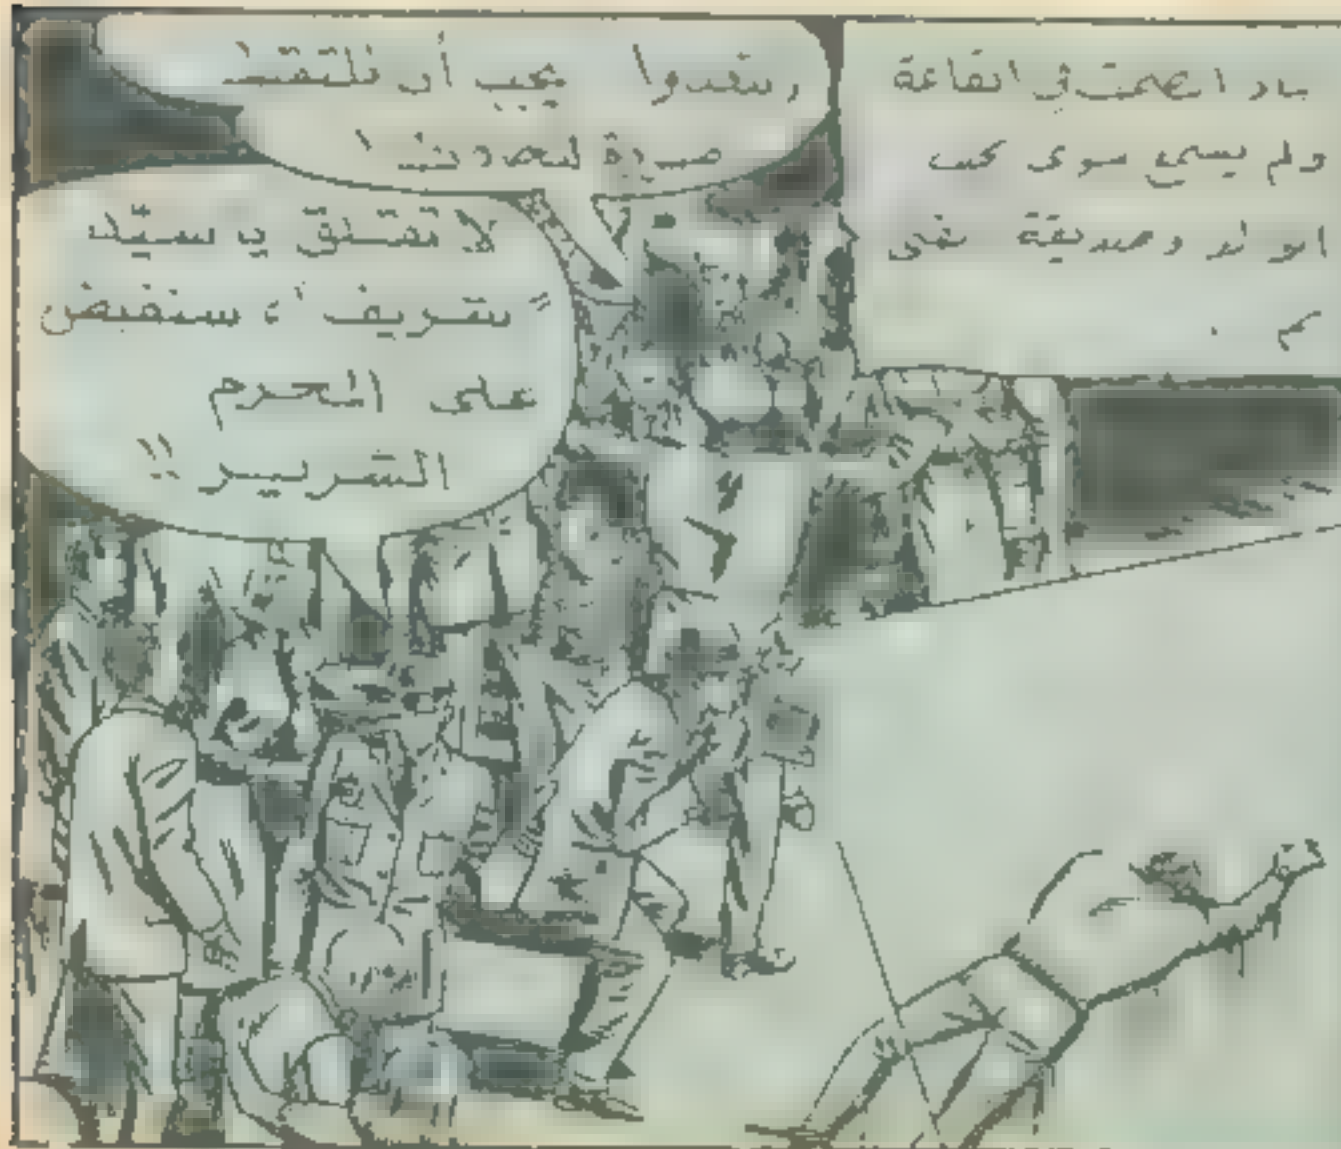 ساد الصمت في القاعة
ولم يسمع سوى
الولد وصديقة
ابتعدوا يجب أن نلتقط
صورة للحادث !
لا تقلق يا سيّد
"ستريف"، سنقبض
على المجرم
الشرير !!